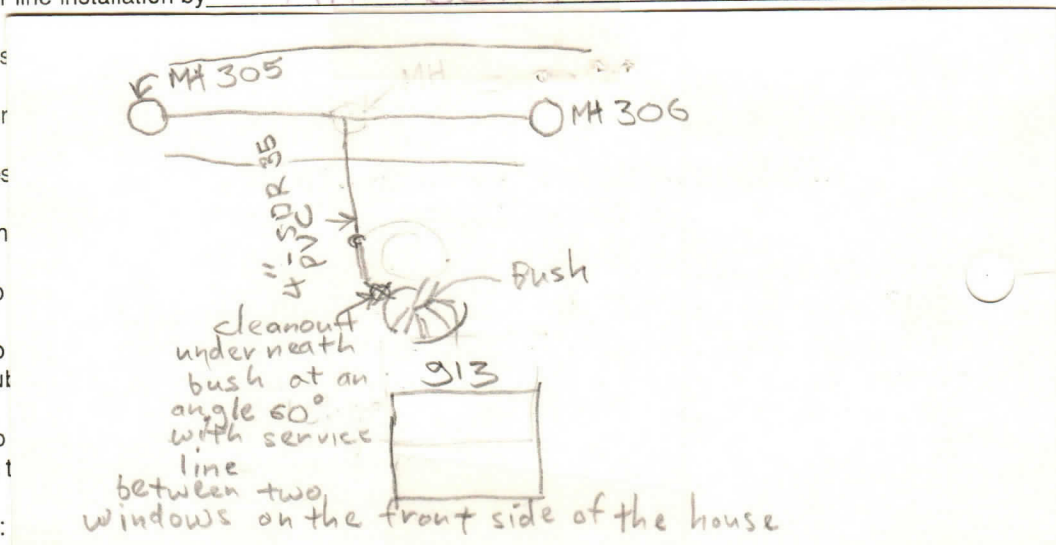 line installation by
MH 305
MH
MH 306
4"-SDR 35
PVC
Bush
cleanout
underneath
bush at an
angle 60°
with service
line
between two
windows on the front side of the house
913